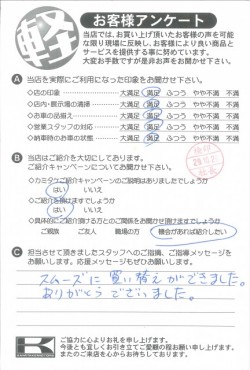 軽
お客様アンケート
当店では、お買い上げ頂いたお客様の声を可能
な限り現場に反映し、お客様により良い商品と
サービスを提供する事に努めています。
大変お手数ですが是非お声をお聞かせ下さい。
A 当店を実際にご利用になった印象をお聞かせ下さい。
◇店の印象 大満足 満足 ふつう やや不満 不満
◇店内・展示場の清掃 大満足 満足 ふつう やや不満 不満
◇お車の品揃え 大満足 満足 ふつう やや不満 不満
◇営業スタッフの対応 大満足 満足 ふつう やや不満 不満
◇納車時のお車の状態 大満足 満足 ふつう やや不満 不満
B 当店はご紹介を大切にしております。
ご紹介キャンペーンについてお聞かせ下さい。
◇カミタケご紹介キャンペーンのご説明はありましたでしょうか
はい いいえ
◇ご紹介を頂けますでしょうか
はい いいえ
◇具体的にご紹介頂ける方とのご関係をお聞かせ頂けますでしょうか
ご親族 ご友人 職場の方 機会があれば紹介したい
C 担当させて頂きましたスタッフへのご指摘、ご指導メッセージを
お願いします。応援メッセージもぜひお願いします。
スムーズに買い替えができました。
ありがとうございました。
K
ご協力に心よりお礼を申し上げます。
今後とも宜しくお引き立てご愛顧の程お願い申し上げます。
またのご来店を心からお待ちしております。